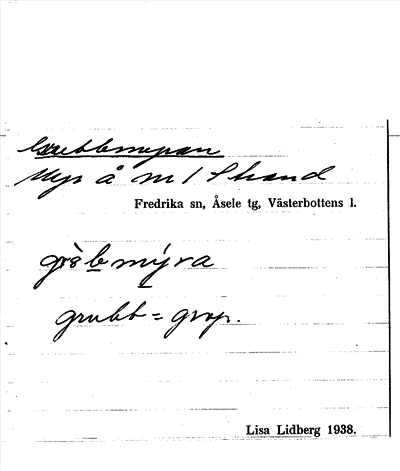 Grubbmyran
Myr å m / Strand
Fredrika sn, Åsele tg, Västerbottens l.
grubb = grop.
Lisa Lidberg 1938.